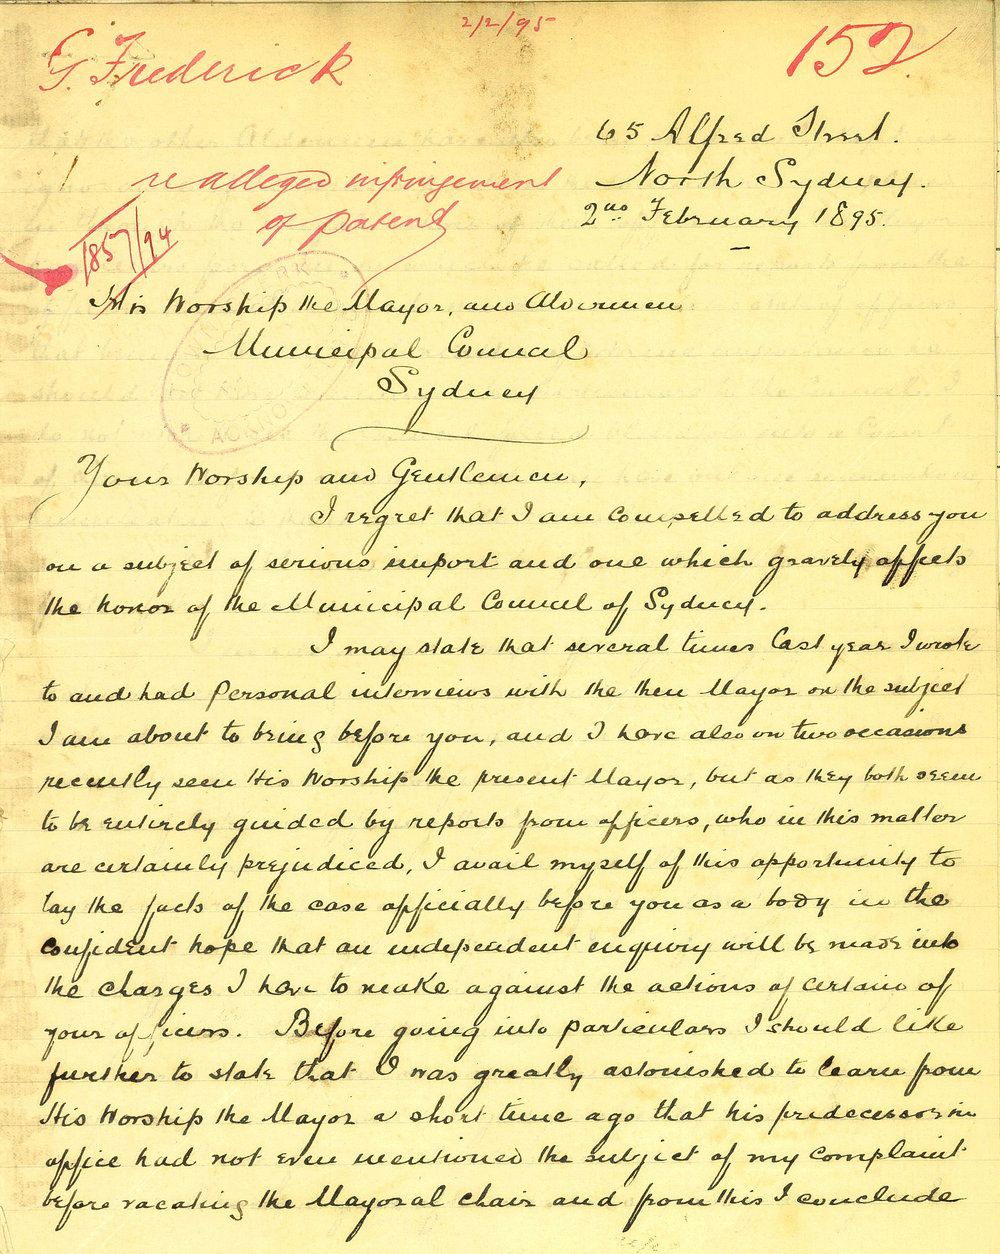 2/2/95
G. Frederick
152
65 Alfred Street.
North Sydney.
2nd February 1895.
re alleged infringement
of patent
1857/94
His Worship the Mayor, and Aldermen
Municipal Council
Sydney
Your Worship and Gentlemen,
I regret that I am compelled to address you
on a subject of serious import and one which gravely affects
the honor of the Municipal Council of Sydney.
I may state that several times last year I wrote
to and had personal interviews with the then Mayor on the subject
I am about to bring before you, and I have also on two occasions
recently seen His Worship the present Mayor, but as they both seem
to be entirely guided by reports from officers, who in this matter
are certainly prejudiced, I avail myself of this opportunity to
lay the facts of the case officially before you as a body in the
confident hope that an independent enquiry will be made into
the charges I have to make against the actions of certain of
your officers. Before going into particulars I should like
further to state that I was greatly astonished to learn from
His Worship the Mayor a short time ago that his predecessor in
office had not even mentioned the subject of my complaint
before vacating the Mayoral chair and from this I conclude